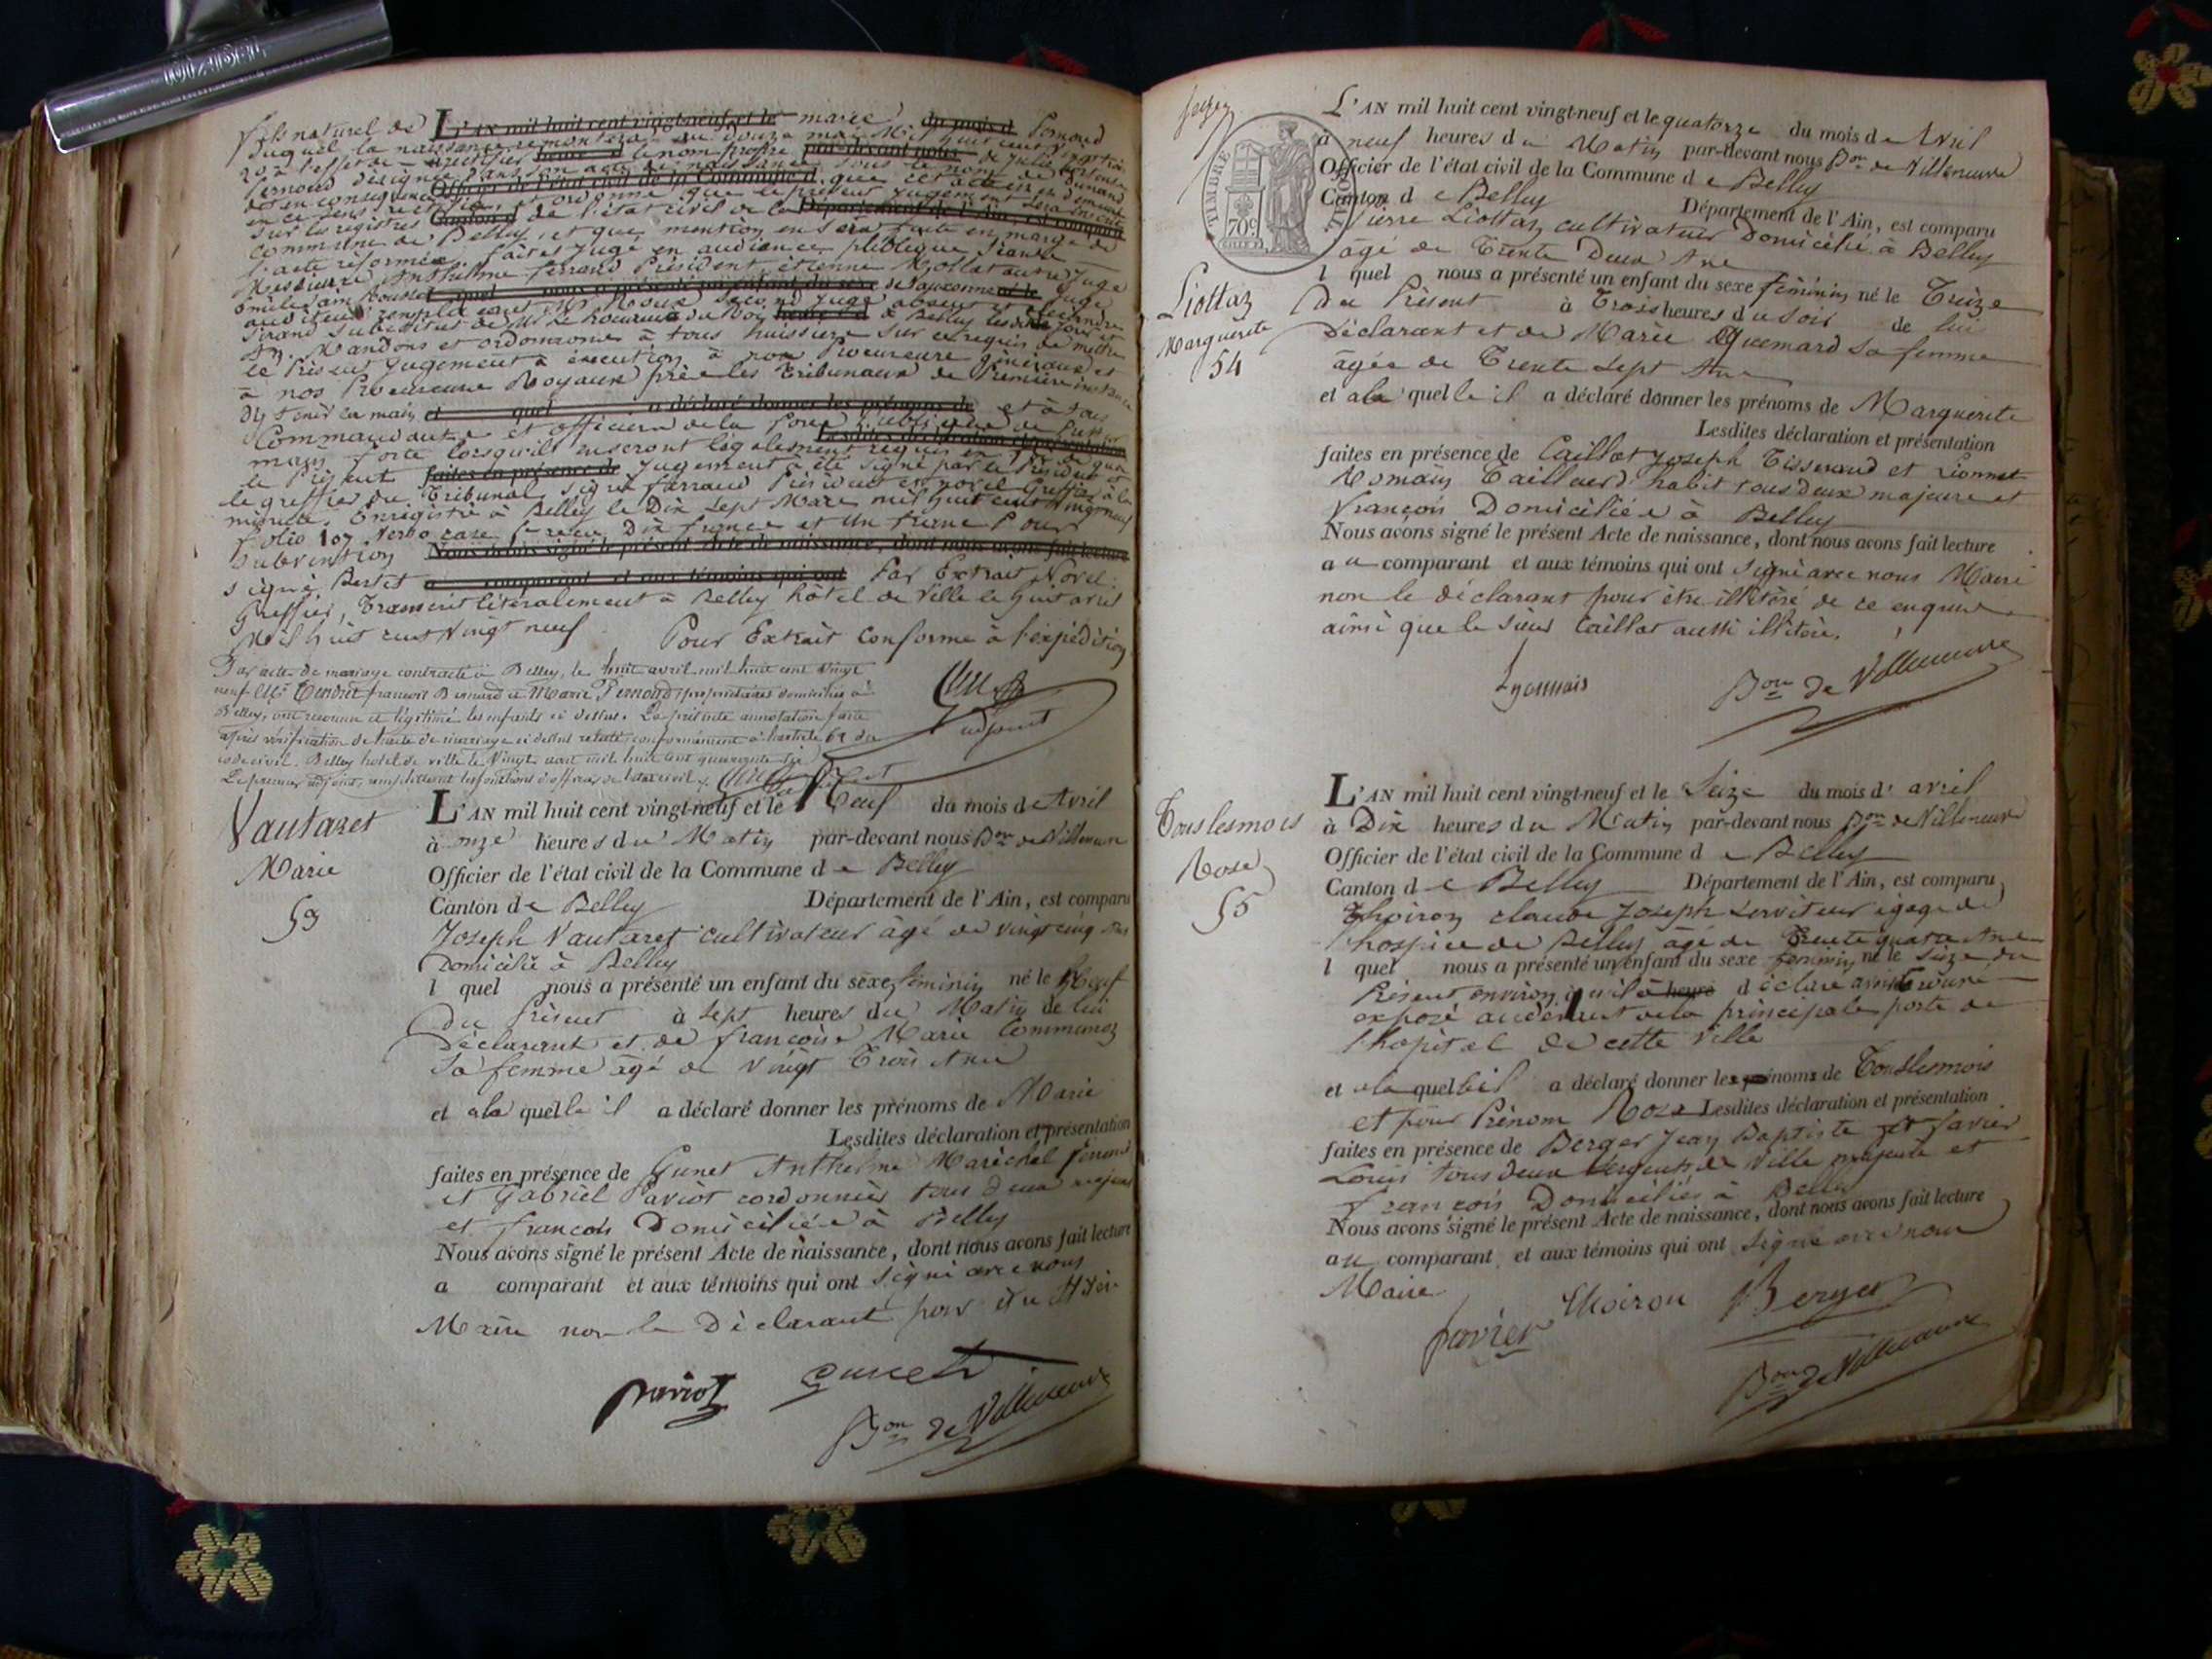 fils naturel de L'AN mil huit cent vingt-neuf et le marie du mois d Pernoud
duquel la naissance remontera au douze mai mil huit cent
2o à l'effet de rectifier heure d le nom propre par-devant nous de julie
Pernoud désignée dans son acte de naissance sous le nom de
dit en conséquence Officier de l'état civil de la Commune d que cet acte
en ce sens rectifié, et ordonne que le présent jugement sera inscrit
sur les registres Canton d de l'état civil de la Département de l'Ain, est comparu
commune de Belley, et que mention en sera faite en marge de
l'acte réformé. fait et jugé en audience publique séante
Messieurs Anthelme ferrand Président étienne Mollet autre juge
l quel nous a présenté un enfant du sexe né le juge
auditeur remplaçant Mr second juge absent et
substitut de Mr le Procureur du Roy heure d de Belley les dits jour et
an. Mandons et ordonnons à tous huissiers sur ce requis de mettre
le Présent jugement à exécution à nos Procureurs généraux et
à nos Procureurs Royaux près les tribunaux de Première instance
d'y tenir la main et quel a déclaré donner les prénoms de et à tous
Commandants et officiers de la force Publique de Prêter
main forte lorsqu'ils en seront légalement requis en foi de quoi
le Présent faites en présence de jugement a été signé par le Président et
le greffier du Tribunal, signé ferrand Président et Novel Greffier à la
minute. Enregistré à Belley le Dix sept Mars mil huit cent vingt neuf
folio 107 Verso case 1re reçu Dix francs et un franc Pour
Subvention Nous avons signé le présent Acte de naissance, dont nous avons fait lecture
signé Bertet a comparant et aux témoins qui ont Par Extrait Novel
Greffier, Transcrit litéralement à Belley hôtel de Ville le huit avril
Mil huit cent vingt neuf Pour Extrait Conforme à l'expédition
Par acte de mariage contracté à Belley, le huit avril mil huit cent vingt
neuf Mr Tendret françois Bernard et Marie Pernoud, propriétaires domiciliés à
Belley, ont reconnu et légitimé les enfants ci dessus. La présente annotation faite
après vérification de l'acte de mariage ci dessus relaté, conformément à l'article 62 du
code civil. Belley hotel de ville le Vingt aout mil huit cent quarante
Le premier adjoint, remplissant les fonctions d'officier de l'état civil.
adjoint
Vautaret
Marie
53
L'AN mil huit cent vingt-neuf et le Neuf du mois d Avril
à onze heures du Matin par-devant nous Bon de Villeneuve
Officier de l'état civil de la Commune d e Belley
Canton de Belley Département de l'Ain, est comparu
Joseph Vautaret cultivateur âgé de vingt cinq ans
Domicilié à Belley
l quel nous a présenté un enfant du sexe féminin né le Neuf
du Présent à sept heures du Matin de lui
Déclarant et de françoise Marie Communez
Sa femme âgé de Vingt Trois Ans
et a la quelle il a déclaré donner les prénoms de Marie
Lesdites déclaration et présentation
faites en présence de Gunet Anthelme Maréchal ferrand
et Gabriel Paviot cordonnier tous deux majeurs
et françois Domiciliés à Belley
Nous avons signé le présent Acte de naissance, dont nous avons fait lecture
a comparant et aux témoins qui ont signé avec nous
Maire non le Déclarant pour être
Paviot Gunet
Bon de Villeneuve
TIMBRE ROYAL
70c
Liottaz
Marguerite
54
L'AN mil huit cent vingt-neuf et le quatorze du mois d Avril
à neuf heures du Matin par-devant nous Bon de Villeneuve
Officier de l'état civil de la Commune d e Belley
Canton d e Belley Département de l'Ain, est comparu
Pierre Liottaz cultivateur Domicilié à Belley
âgé de Trente Deux Ans
l quel nous a présenté un enfant du sexe féminin né le Treize
du Présent à Trois heures du soir de lui
Déclarant et de Marie Quemard Sa femme
âgée de Trente Sept Ans
et a la quelle il a déclaré donner les prénoms de Marguerite
Lesdites déclaration et présentation
faites en présence de Caillot Joseph Tisserand et Lionnet
Romain Tailleur d'habit tous deux majeurs et
françois Domiciliés à Belley
Nous avons signé le présent Acte de naissance, dont nous avons fait lecture
au comparant et aux témoins qui ont signé avec nous Maire
non le déclarant pour être illitéré de ce enquis
ainsi que le sieur Caillot aussi illitéré.
Lyonnais Bon de Villeneuve
Touslesmois
Rose
55
L'AN mil huit cent vingt-neuf et le Seize du mois d' avril
à Dix heures du Matin par-devant nous Bon de Villeneuve
Officier de l'état civil de la Commune d e Belley
Canton d e Belley Département de l'Ain, est comparu
Thoiron claude Joseph Serviteur à gage de
l'hospice de Belley âgé de Trente quatre Ans
l quel nous a présenté un enfant du sexe feminin né le seize du
Présent environ qu'il à heure déclare avoir trouvé
exposé audevant de la principale porte de
l'hopital de cette Ville
et a la quelle il a déclaré donner les prénoms de Touslesmois
et pour Prénom Rose Lesdites déclaration et présentation
faites en présence de Berger Jean Baptiste et Favier
Louis tous deux Sergents de Ville majeurs et
françois Domiciliés à Belley
Nous avons signé le présent Acte de naissance, dont nous avons fait lecture
au comparant et aux témoins qui ont signé avec nous
Maire
favier Thoiron Berger
Bon de Villeneuve